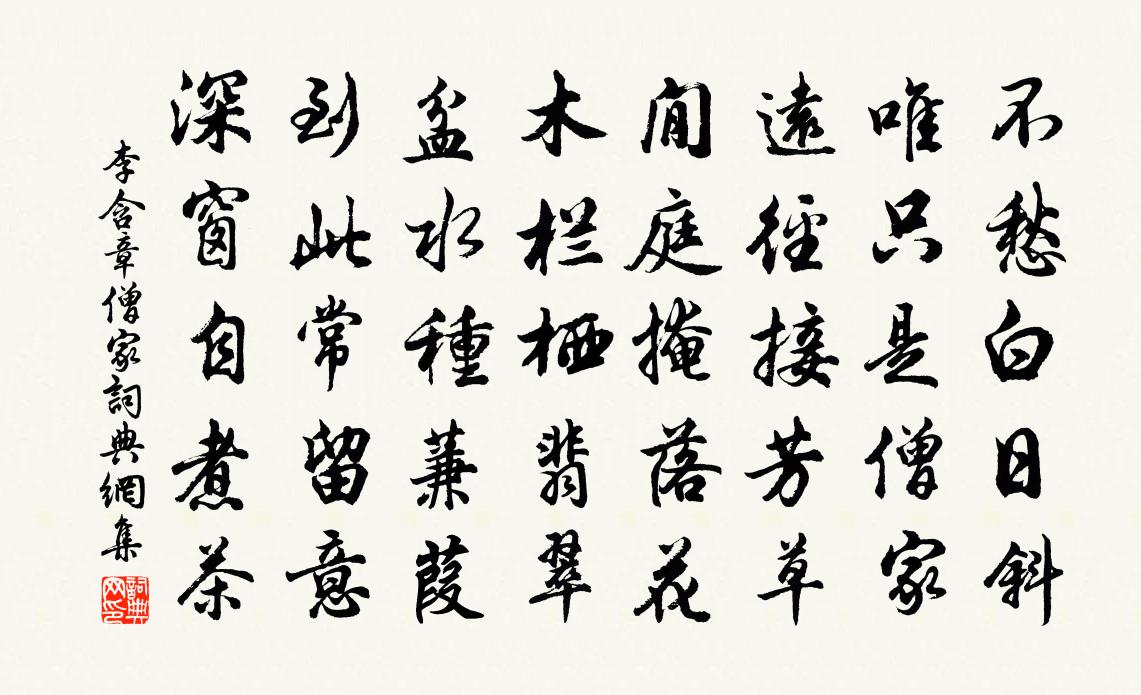 不愁白日斜
唯只是僧家
遠徑接芳草
閒庭掩落花
木栏栖翡翠
盆水種蒹葭
到此常留意
深窗自煮茶
李含章僧家詞典網集
詞典网印